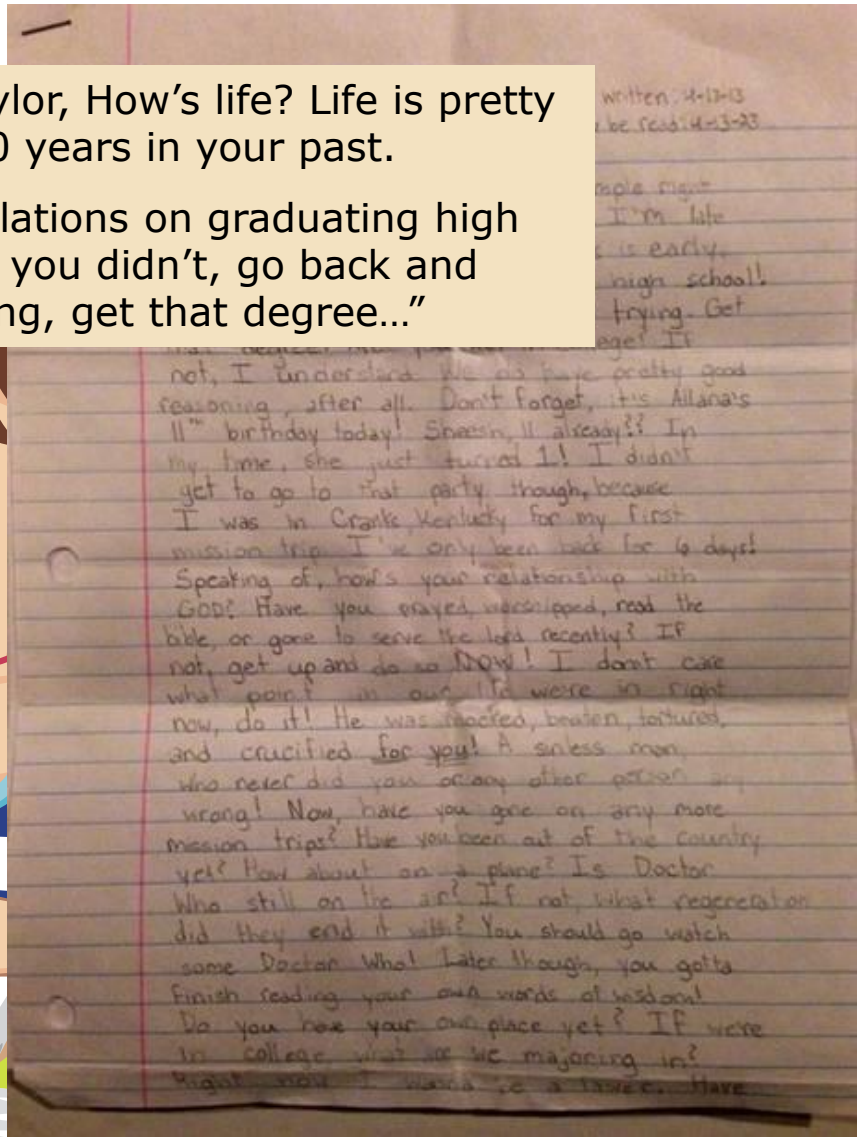 ylor, How’s life? Life is pretty
0 years in your past.
lations on graduating high
you didn’t, go back and
ng, get that degree…”
written: 4-13-13
be read: 4-13-23
mple right
I'm late
is early,
high school!
trying. Get
that degree! Are you in college? If
not, I understand. We do have pretty good
reasoning, after all. Don't forget, it's Allana's
11th birthday today! Sheesh, 11 already?! In
my time, she just turned 1! I didn't
get to go to that party though, because
I was in Cranks, Kentucky for my first
mission trip. I've only been back for 6 days!
Speaking of, how's your relationship with
GOD? Have you prayed, worshipped, read the
bible, or gone to serve the lord recently? If
not, get up and do so NOW! I don't care
what point in our life we're in right
now, do it! He was mocked, beaten, tortured,
and crucified for you! A sinless man,
who never did you or any other person any
wrong! Now, have you gone on any more
mission trips? Have you been out of the country
yet? How about on a plane? Is Doctor
Who still on the air? If not, what regeneration
did they end it with? You should go watch
some Doctor Who! Later though, you gotta
finish reading your own words of wisdom!
Do you have your own place yet? If we're
in college, what are we majoring in?
Right now I wanna be a lawer. Have